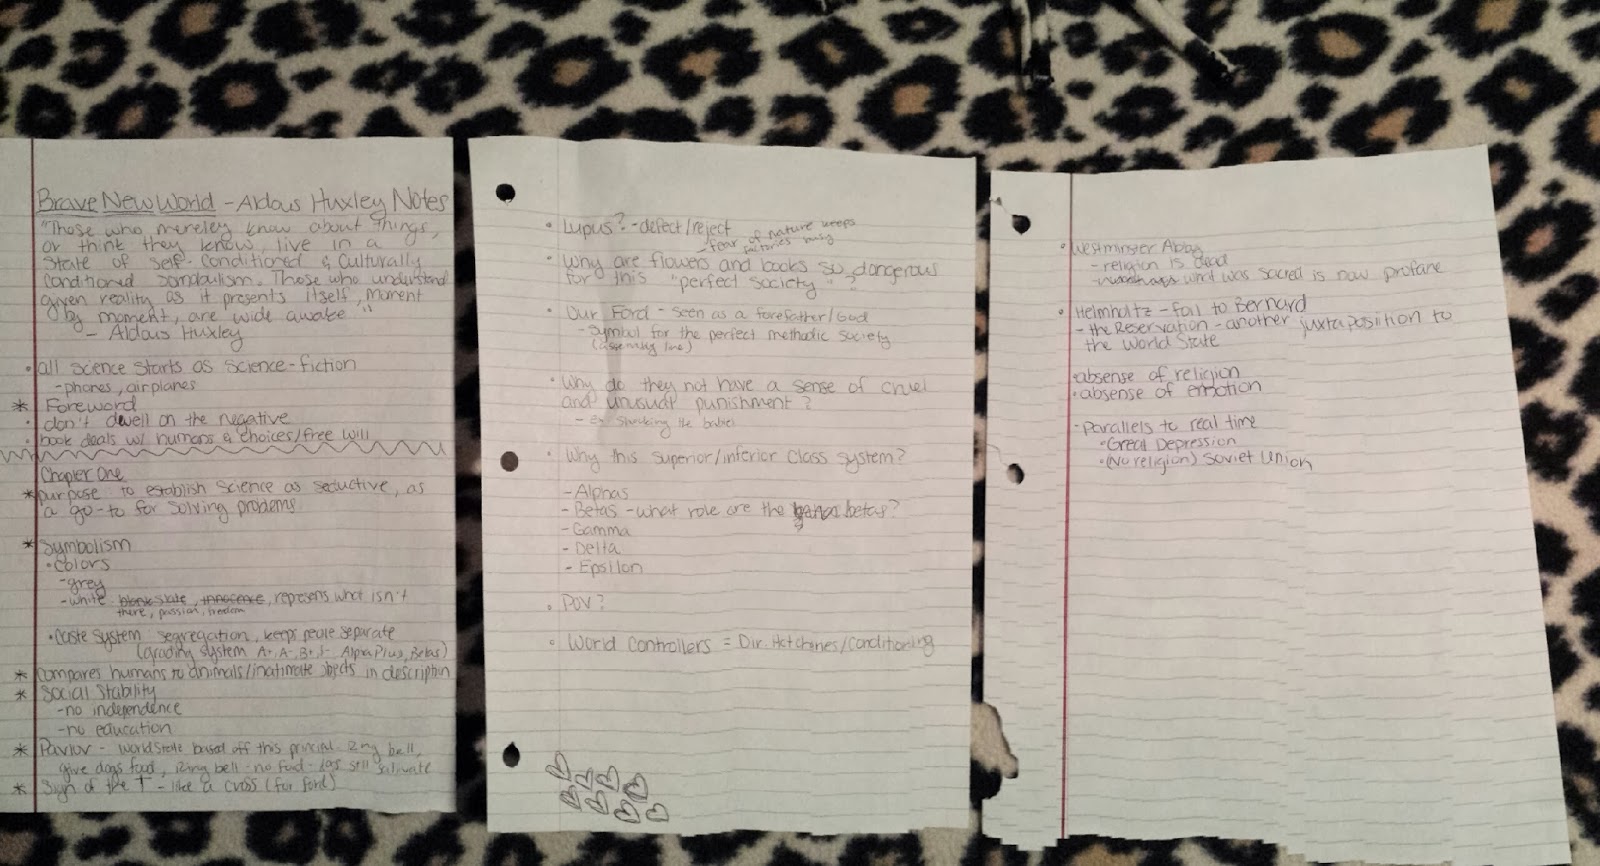 Brave New World - Aldous Huxley Notes
"Those who mereley know about things,
or think they know, live in a
state of self-conditioned & culturally
conditioned somnbulism. Those who understand
given reality as it presents itself, moment
by moment, are wide awake"
- Aldous Huxley
• all science starts as science-fiction
- phones, airplanes
* Foreword
• don't dwell on the negative
• book deals w/ humans & choices/free will
Chapter One
* purpose to establish science as seductive, as
a go-to for solving problems
* Symbolism
• colors
- grey
- white- blank slate, innocence, represens what isn't
there, passion, freedom
• Caste System segregation, keeps people separate
(grading system A+, A-, B+, B- Alpha Plus, Betas)
* compares humans to animals/inatimate objects in description
* Social Stability
- no independence
- no education
* Pavlov - World State based off this principal. Ring bell,
give dogs food, Ring bell - no food - dogs still salivate
* Sign of the T - like a cross (for Ford)
• Lupus? - defect/reject
- fear of nature keeps
factories busy
• Why are flowers and books so dangerous
for this "perfect society"?
• Our Ford - seen as a forefather/God
- symbol for the perfect methodic society
(assembly line)
• Why do they not have a sense of cruel
and unusual punishment?
- ex shocking the babies
• Why this superior/inferior class system?
- Alphas
- Betas - what role are the betas?
- Gamma
- Delta
- Epsilon
• POV?
• World Controllers = Dir. Hatcheries/Conditioning
• Westminster Abby
- religion is dead
- what was sacred is now profane
• Helmholtz - foil to Bernard
- the Reservation - another juxtaposition to
the World State
• absense of religion
• absense of emotion
- Parallels to real time
• Great Depression
• (No religion) Soviet Union